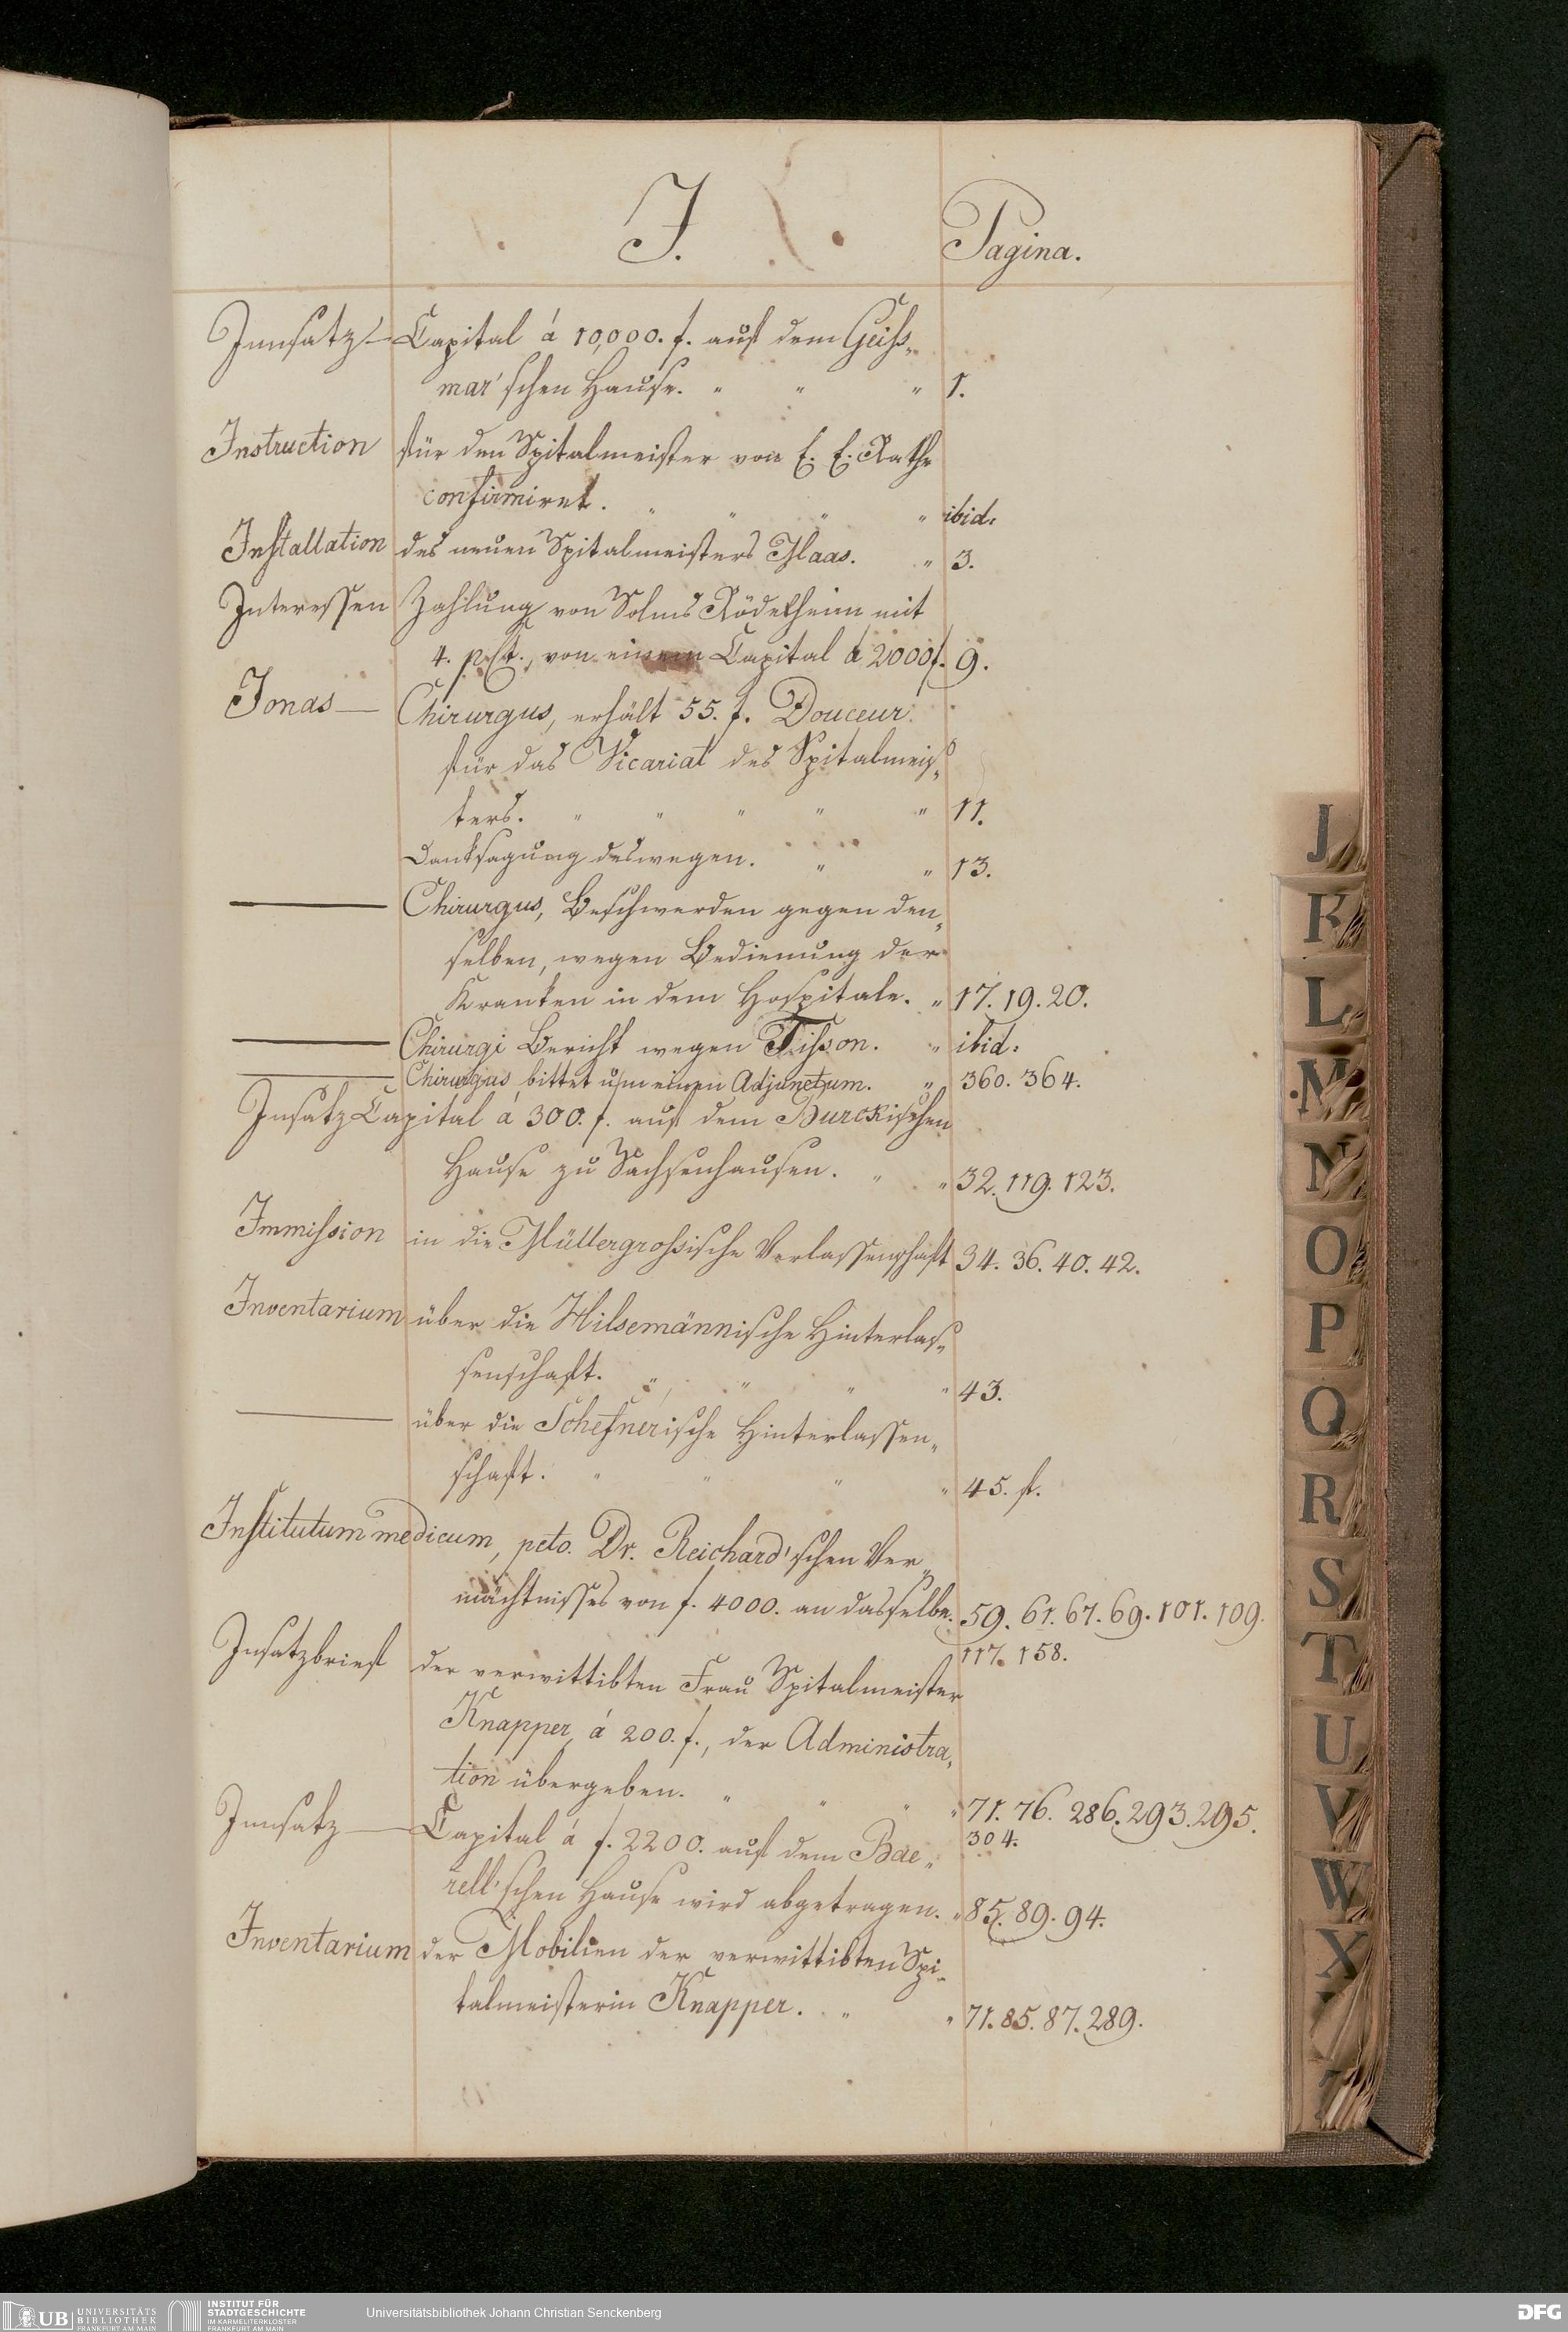 J.
Pagina.
Innsatz — Capital á 10,000. f. auf dem Geiß„
mar'schen Hause. " " " 1.
Instruction für den Spitalmeister von E. E. Rathe
confirmiret. " " " " ibid.
Installation des neuen Spitalmeisters Haas. " 3.
Interessen Zahlung von Solms Rödelheim mit
4. p.Ct., von einem Capital á 2000 f. 9.
Jonas — Chirurgus, erhält 55. f. Douceur
für das Vicariat des Spitalmeis„
ters. " " " " " 11.
Danksagung deswegen. " " 13.
— Chirurgus, Beschwerden gegen den„
selben, wegen Bedienung der
Kranken in dem Hospitale. " 17. 19. 20.
— Chirurgi Bericht wegen Tißon. " ibid.
— Chirurgus bittet um einen Adjunctum. " 360. 364.
Insatz Capital á 300. f. auf dem Burckischen
Hause zu Sachsenhausen. " " 32. 119. 123.
Immission in die Müllergroßische Verlassenschaft 34. 36. 40. 42.
Inventarium über die Hilsemännische Hinterlas„
senschaft. " " " " 43.
— über die Schefnerische Hinterlassen„
schaft. " " " " 45. f.
Institutum medicum, pcto. Dr. Reichard'schen Ver„
mächtnisses von f. 4000. an dasselbe. 59. 61. 67. 69. 101. 109.
117. 158.
Insatzbrief der verwittibten Frau Spitalmeister
Knapper á 200. f., der Administra„
tion übergeben. " " " " 71. 76. 286. 293. 295.
304.
Innsatz — Capital á f. 2200. auf dem Bae„
rell'schen Hause wird abgetragen. " 85. 89. 94.
Inventarium der Mobilien der verwittibten Spi„
talmeisterin Knapper. " " 71. 85. 87. 289.
J
K
L
M
N
O
P
Q
R
S
T
U
V
W
X
UB UNIVERSITÄTS
BIBLIOTHEK
FRANKFURT AM MAIN
INSTITUT FÜR
STADTGESCHICHTE
IM KARMELITERKLOSTER
FRANKFURT AM MAIN
Universitätsbibliothek Johann Christian Senckenberg
DFG